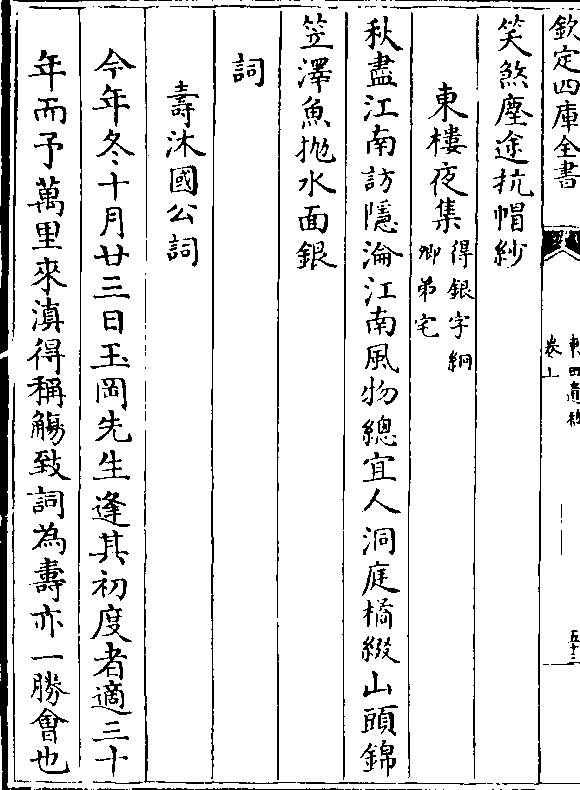 欽定四庫全書
卷上
五十三
笑煞塵途抗帽紗
東樓夜集得銀字絅
卿弟宅
秋盡江南訪隱淪江南風物總宜人洞庭橘綴山頭錦
笠澤魚拋水面銀
詞
壽沐國公詞
今年冬十月廿三日玉岡先生逢其初度者適三十
年而予萬里來滇得稱觴致詞為壽亦一勝會也